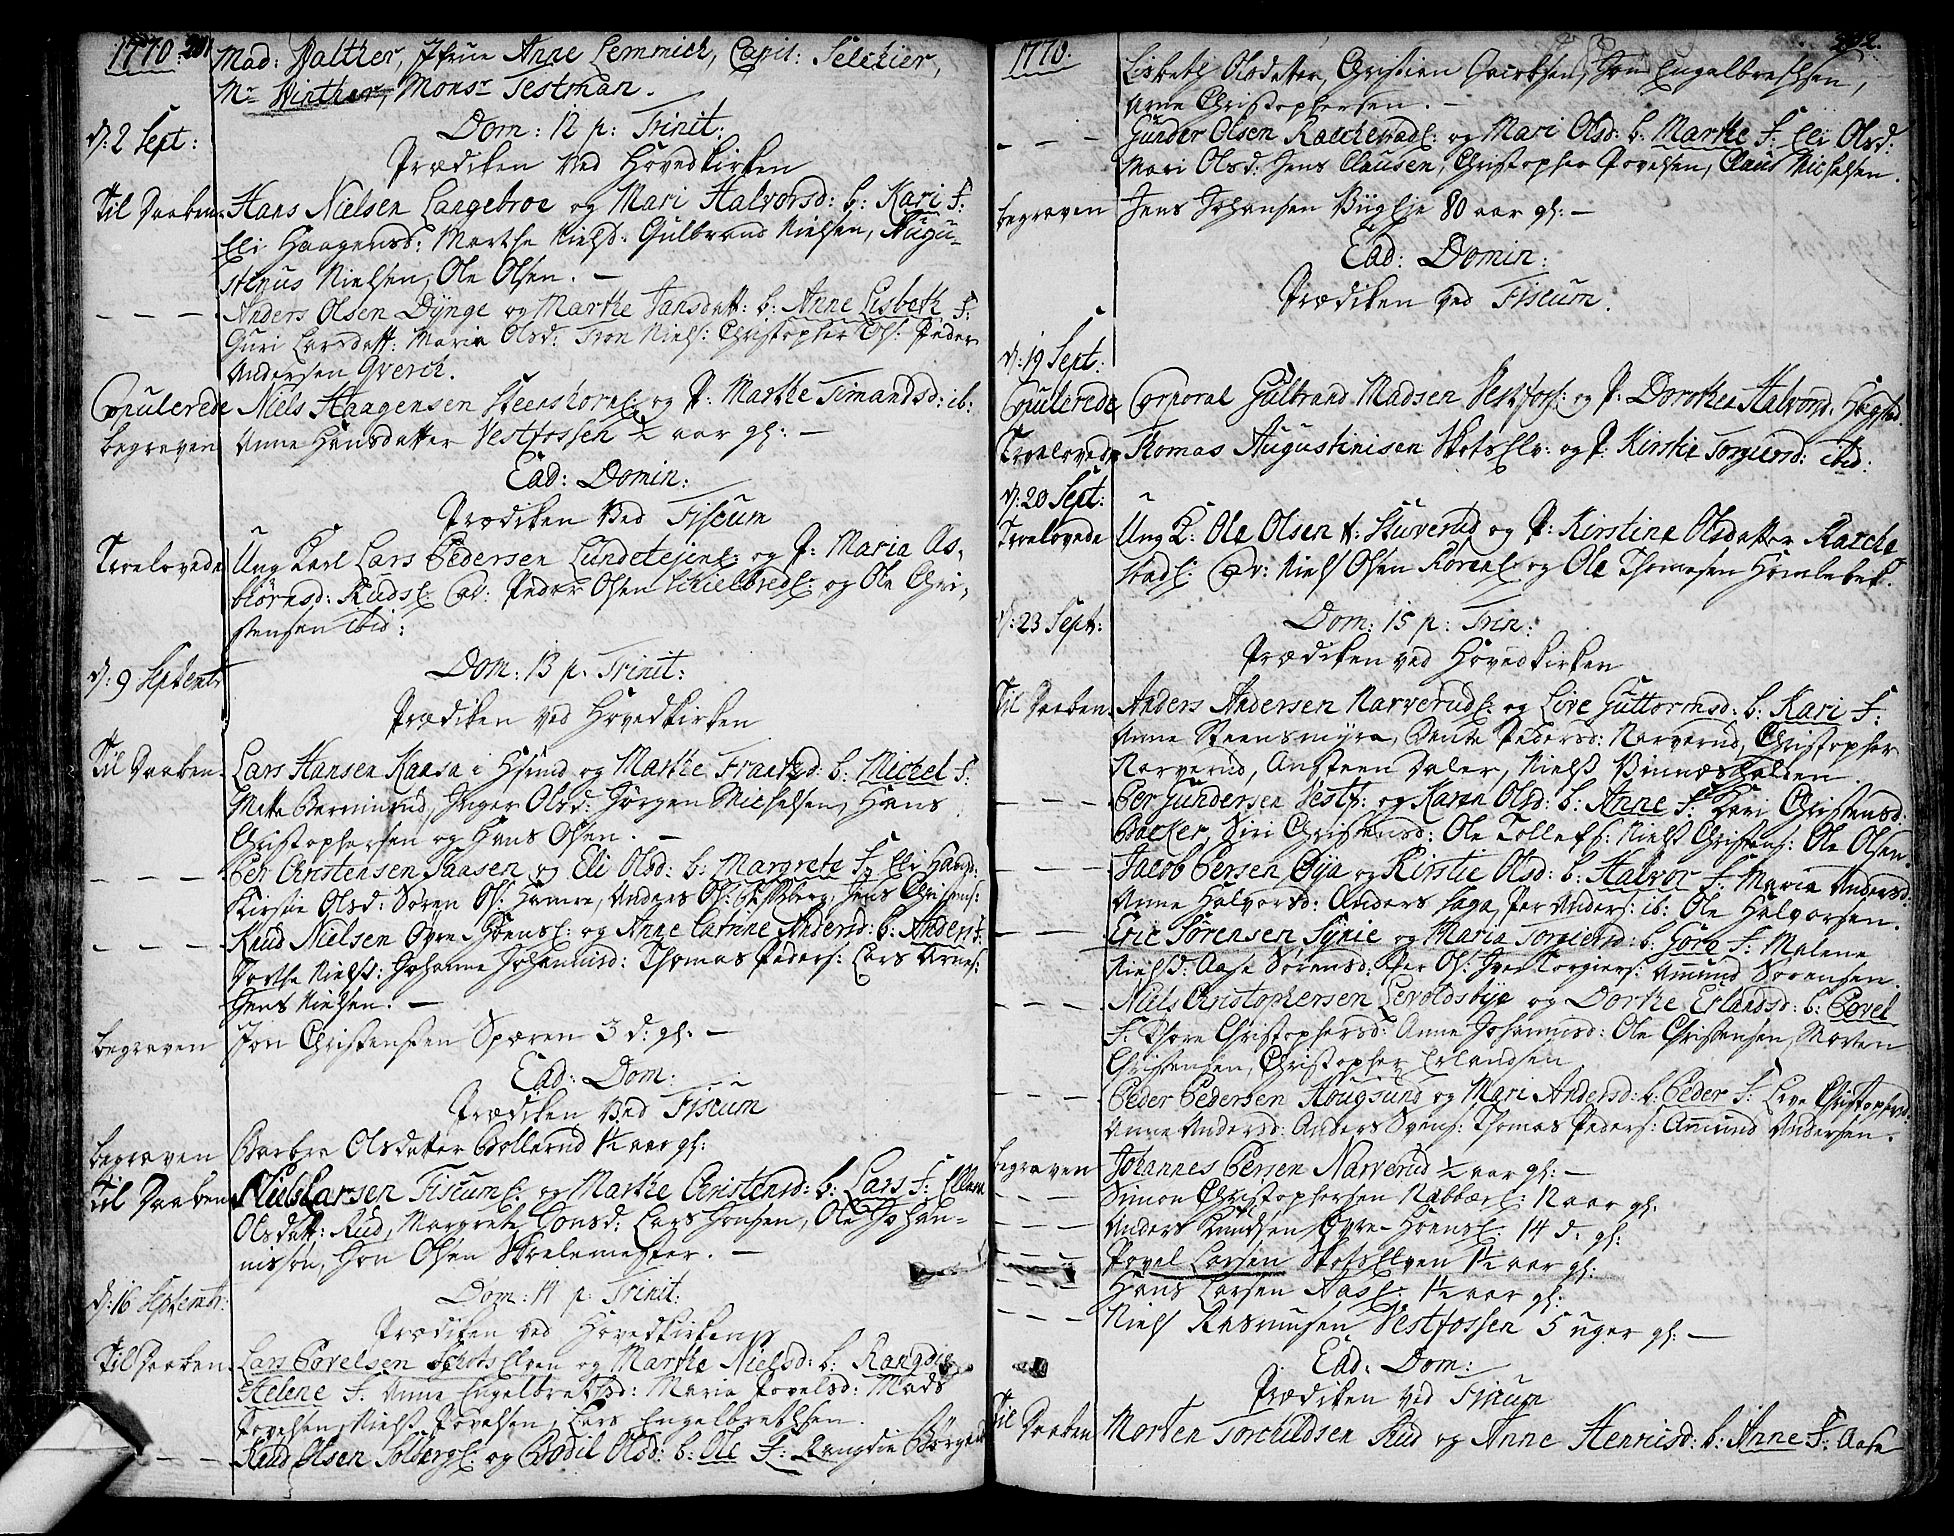 1770. 291
Mad: Walther, Jfrue Anne Lemmich, Capit: Selchier,
Mr Winther, Monsr Testman.
d: 2 Sept:
Dom: 12 p: Trinit:
Prædiken ved Hovedkirken
Til Daaben Hans Nielsen Langebroe og Mari Halvorsd: b: Kari F:
Eli Haagensd: Marthe Nielsd: Gulbrand Nielsen, Augu-
stinus Nielsen, Ole Olsen. –
– – – Anders Olsen Dynge og Marthe Jansdatt: b: Anne Lisbeth F:
Guri Larsdatt: Maria Olsd: Tron Niels: Christopher Ols: Peder
Andersen Qverck.
Copulerede Niels Haagensen og P: Marthe Simandsd: ib:
begraven Anne Hansdatter Vestfossen ½ aar gl: –
Ead: Domin:
Prædiken ved Fiscum
Troelovede Ung Karl Lars Pedersen Lundetejene: og P: Maria As-
biørnsd: Ruds: Cav: Peder Olsen og Ole Chri-
stensen ibid:
d: 9 Septembr
Dom: 13 p. Trinit:
Prædiken ved Hovedkirken
Til Daaben Lars Hansen Kaasa i og Marthe b: Michel F:
Mette Berminrud, Inger Olsd: Jørgen Michelsen, Hans
Christophersen og Hans Olsen. –
– – – Per Christensen Saasen og Eli Olsd: b: Margrete F: Eli Hansd:
Kirstie Olsd: Søren Ols: Hamre, Anders Ols: Jens Christens:
– – – Knud Nielsen Øvre Hoens: og Anne Catrine Andersd: b: Anders F:
Dorthe Nielsd: Johanne Johannisd: Thomas Peders: Lars Arnes:
Jens Nielsen. –
begraven Jon Christensen Spæren 3 d: gl: –
Ead: Dom:
Prædiken ved Fiscum
begraven Barbra Olsdatter Bollerud 1½ aar gl:
Til Daaben Niels Larsen Fiscum: og Marthe Christensd: b: Lars F: Ellen
Olsdatt: Rud, Margrete Hansd: Lars Hansen, Ole Johan-
nissøn, Jon Olsen Skolemester. –
d: 16 Septembr:
Dom: 14 p: Trinit:
Prædiken ved Hovedkirken
Til Daaben Lars Povelsen SchotsElven og Marthe Nielsd: b: Rangdie
Helene F. Anne Engelbrethsd: Maria Povelsd: Mads
Povelsen, Niels Povelsen, Lars Engelbrethsen.
– – Knud Olsen Solberg: og Bodil Olsd: b: Ole F: Rangdie
1770. 292.
Lisbeth Olsdatter, Christien Jacobsen, Jon Engelbrethsen,
Arne Christophersen. –
– – – Gunder Olsen og Mari Olsd: b: Marthe F: Eli Olsd:
Mari Olsd: Jens Clausen, Christopher Povelsen, Claus Michelsen.
begraven Jens Johansen 80 aar gl: –
Ead: Domin:
Prædiken ved Fiscum.
d: 19 Sept:
Copulerede Corporal Gulbrand Madsen Vestfos: og P: Dorthea Halvorsd.
Troelovede Thomas Augustinisen SkotsElv: og P: Kirstie Torgiersd: ibid:
d: 20 Sept:
Troelovede Ung K: Ole Olsen og P: Kirstine Olsdatter Raache
stad: Cav: Niels Olsen og Ole Thomesen Hamlebek.
d: 23 Sept:
Dom: 15 p: Trin:
Prædiken ved Hovedkirken
Til Daaben Anders Andersen Narverud: og Live Guttormsd: b: Kari F:
Anne Steensmyra, Dente Pedersd: Narverud, Christopher
Narverud, Ansteen Daler, Niels
– – – Per Gundersen Vestf: og Karen Olsd: b: Anne F: Kari Christensd:
Backer, Siri Christensd: Ole Tollefs: Niels Christens: Ole Olsen.
– – – Jacob Persen Øya og Kirstie Olsd: b: Halvor F: Maria Andersd:
Anne Halvorsd: Anders Haga, Per Anders: ib: Ole Halvorsen.
– – Eric Sørensen og Maria Torgiersd: b: Gore F: Malene
Nielsd: Aase Sørensd: Per Ols: Iver Torgiers: Amund Sørensen.
– – – Niels Christophersen og Dorthe Erlandsd: b: Povel
F: Thore Christophersd: Anne Johannisd: Ole Christensen, Morten
Christensen, Christopher Erlandsen
– – – Peder Pedersen Hougsund og Mari Andersd: b: Peder F: Live Christophersd:
Anne Andersd: Anders Svens: Thomas Peders: Amund Andersen.
begraven Johannes Persen Narverud ½ aar gl: –
– – Simon Christophersen 12 aar gl:
– – Anders Knudsen Øvre-Hoens: 14 d: gl:
– – Povel Larsen SkotsElven 1½ aar gl:
– – Hans Larsen Aas: 1½ aar gl:
– – Niels Rasmusen Vestfossen 5 uger gl: –
Ead: Dom:
Prædiken ved Fiscum
Til Daaben Morten Torchildsen Rud og Anne Henricsd: b: Anne F: Aase